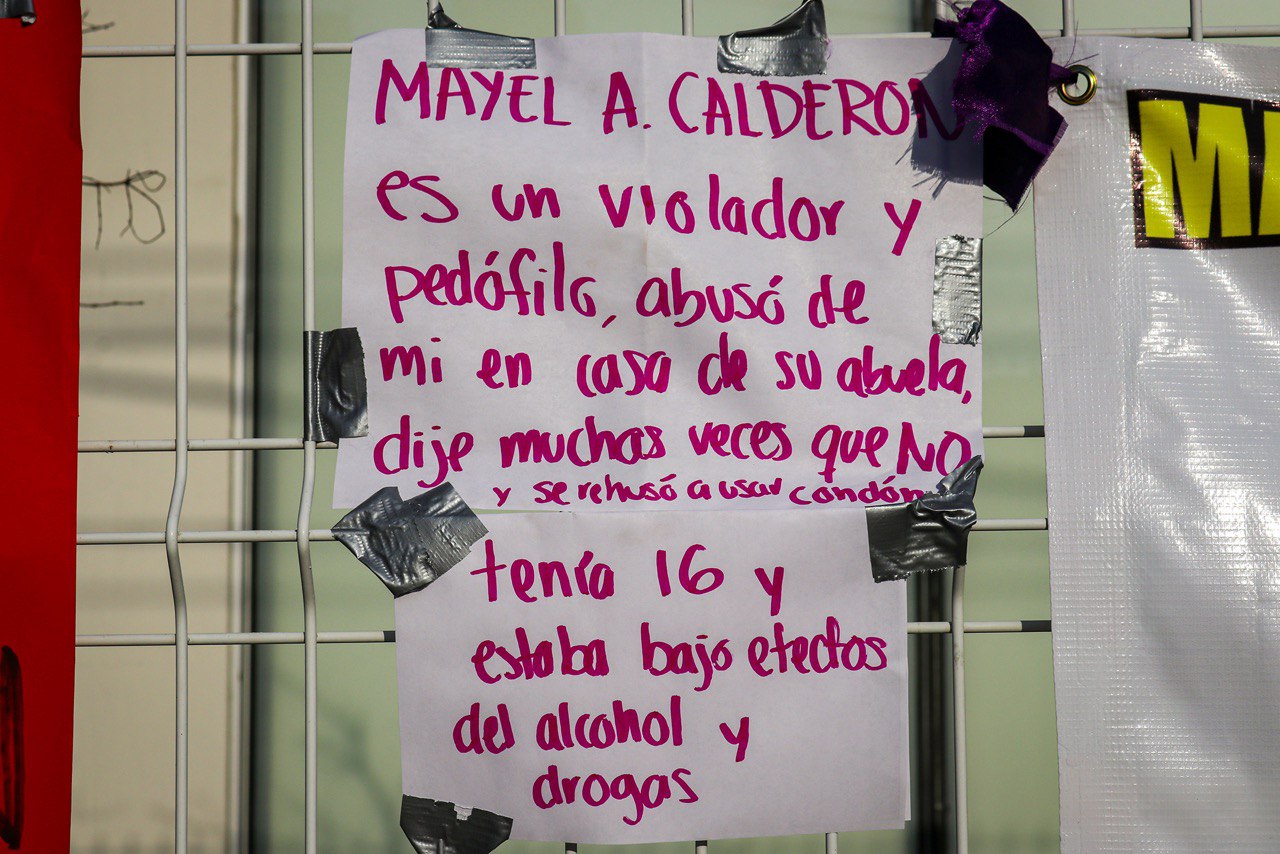 MAYEL A. CALDERON
es un violador y
pedófilo, abusó de
mi en casa de su abuela,
dije muchas veces que NO
y se rehusó a usar condón
tenía 16 y
estaba bajo efectos
del alcohol y
drogas